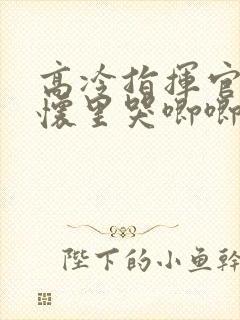 高冷指揮官
懷里哭唧唧
陛下的小鱼幹